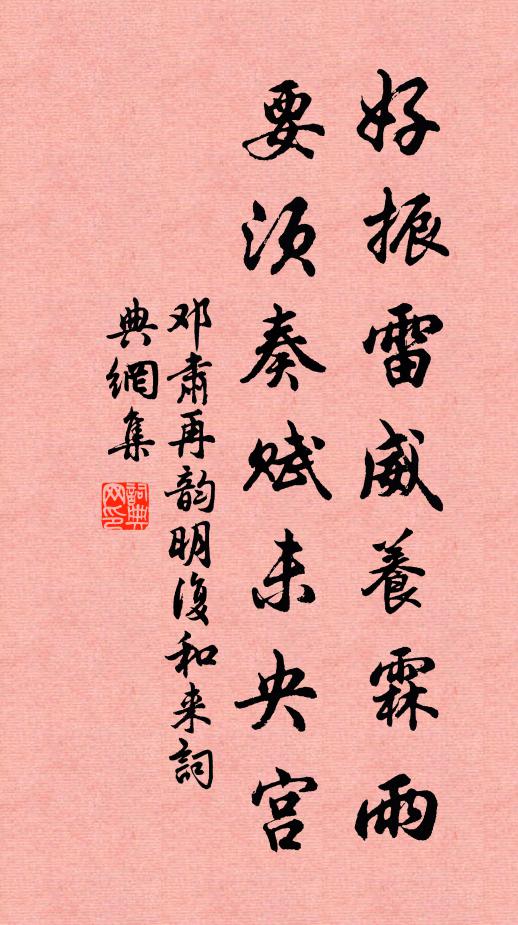 好振雷威養霖雨
要須奏賦未央宫
邓肅再韵明復和来詞
典網集
詞典网印